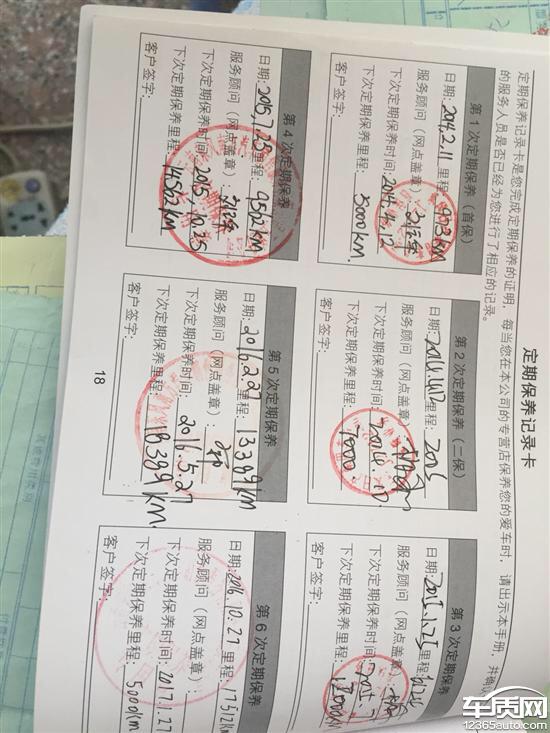 定期保养记录卡
定期保养记录卡是您完成定期保养的证明，每当您在本公司的专营店保养您的爱车时，请出示本手册，并确认
的服务人员是否已经为您进行了相应的记录。
第1次定期保养（首保）
日期: 2014.2.11 里程: 903km
服务顾问（网点盖章）:
下次定期保养时间: 2014.4.12
下次定期保养里程: 5000km.
客户签字:
第2次定期保养（二保）
日期: 里程:
服务顾问（网点盖章）:
下次定期保养时间:
下次定期保养里程: 7000
客户签字:
第3次定期保养
日期: 2015.1.25 里程:
服务顾问（网点盖章）:
下次定期保养时间:
下次定期保养里程:
客户签字:
第4次定期保养
日期: 2015.7.25 里程: 9562km
服务顾问（网点盖章）:
下次定期保养时间: 2015.10.25
下次定期保养里程: 14562km
客户签字:
第5次定期保养
日期: 2016.2.27 里程: 13389km
服务顾问（网点盖章）:
下次定期保养时间: 2016.5.27
下次定期保养里程: 18389km
客户签字:
第6次定期保养
日期: 2016.10.27 里程: 17512km
服务顾问（网点盖章）:
下次定期保养时间: 2017.1.27
下次定期保养里程: 5000km
客户签字:
18
车质网
12365auto.com